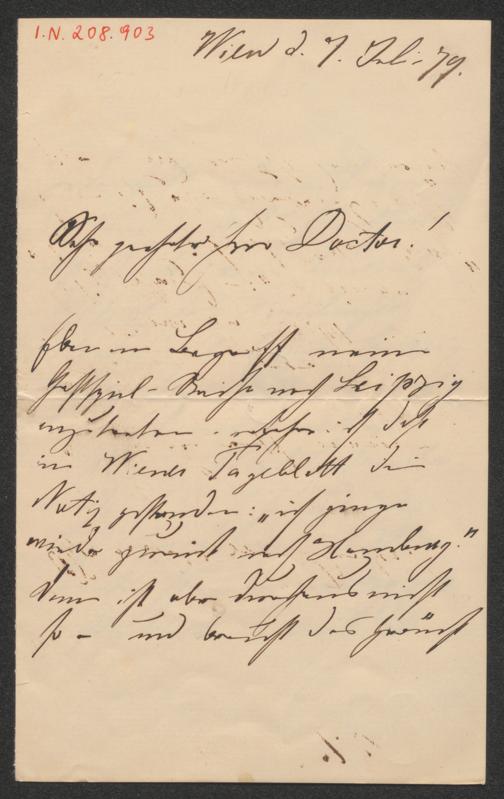 I.N. 208.903
Wien d. 7. Juli 79.
Sehr geehrter Herr Doctor!
Eben im Begriff meine
Gastspiel-Reise nach Leipzig
anzutreten erfahre ich daß
im Wiener Tageblatt die
Notiz gestanden: „ich ginge
wieder zurück nach Hamburg."
Dem ist aber durchaus nicht
so - und beruht das Gerücht